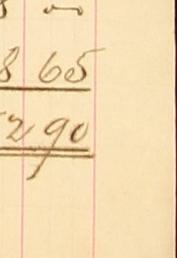 8 65
2 90